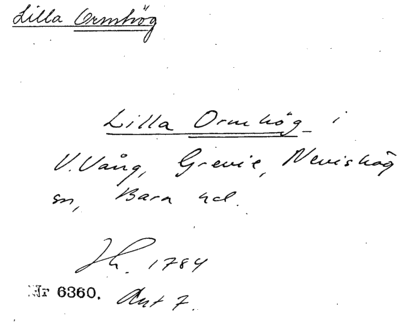 Lilla Ormhög
Lilla Ormhög i
V. Vång, Grevie, Nevishög
sn, Bara hd.
Jh. 1784
Nr 6360. Akt 7.